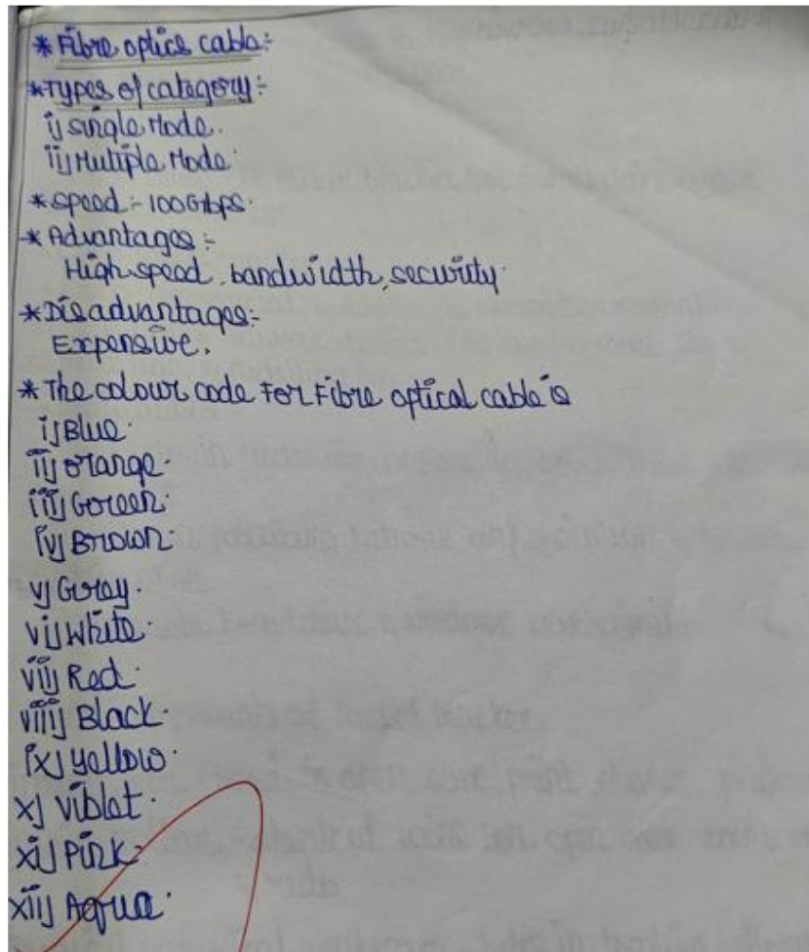 * Fibre optics cable:-
* Types of category:-
i) Single Mode.
ii) Multiple Mode.
* Speed:- 100Gbps.
* Advantages:-
High speed, bandwidth, security.
* Disadvantages:-
Expensive.
* The colour code For Fibre optical cable is
i) Blue.
ii) orange.
iii) Green.
iv) Brown.
v) Grey.
vi) White.
vii) Red.
viii) Black.
ix) yellow.
x) Violet.
xi) Pink.
xii) Aqua.